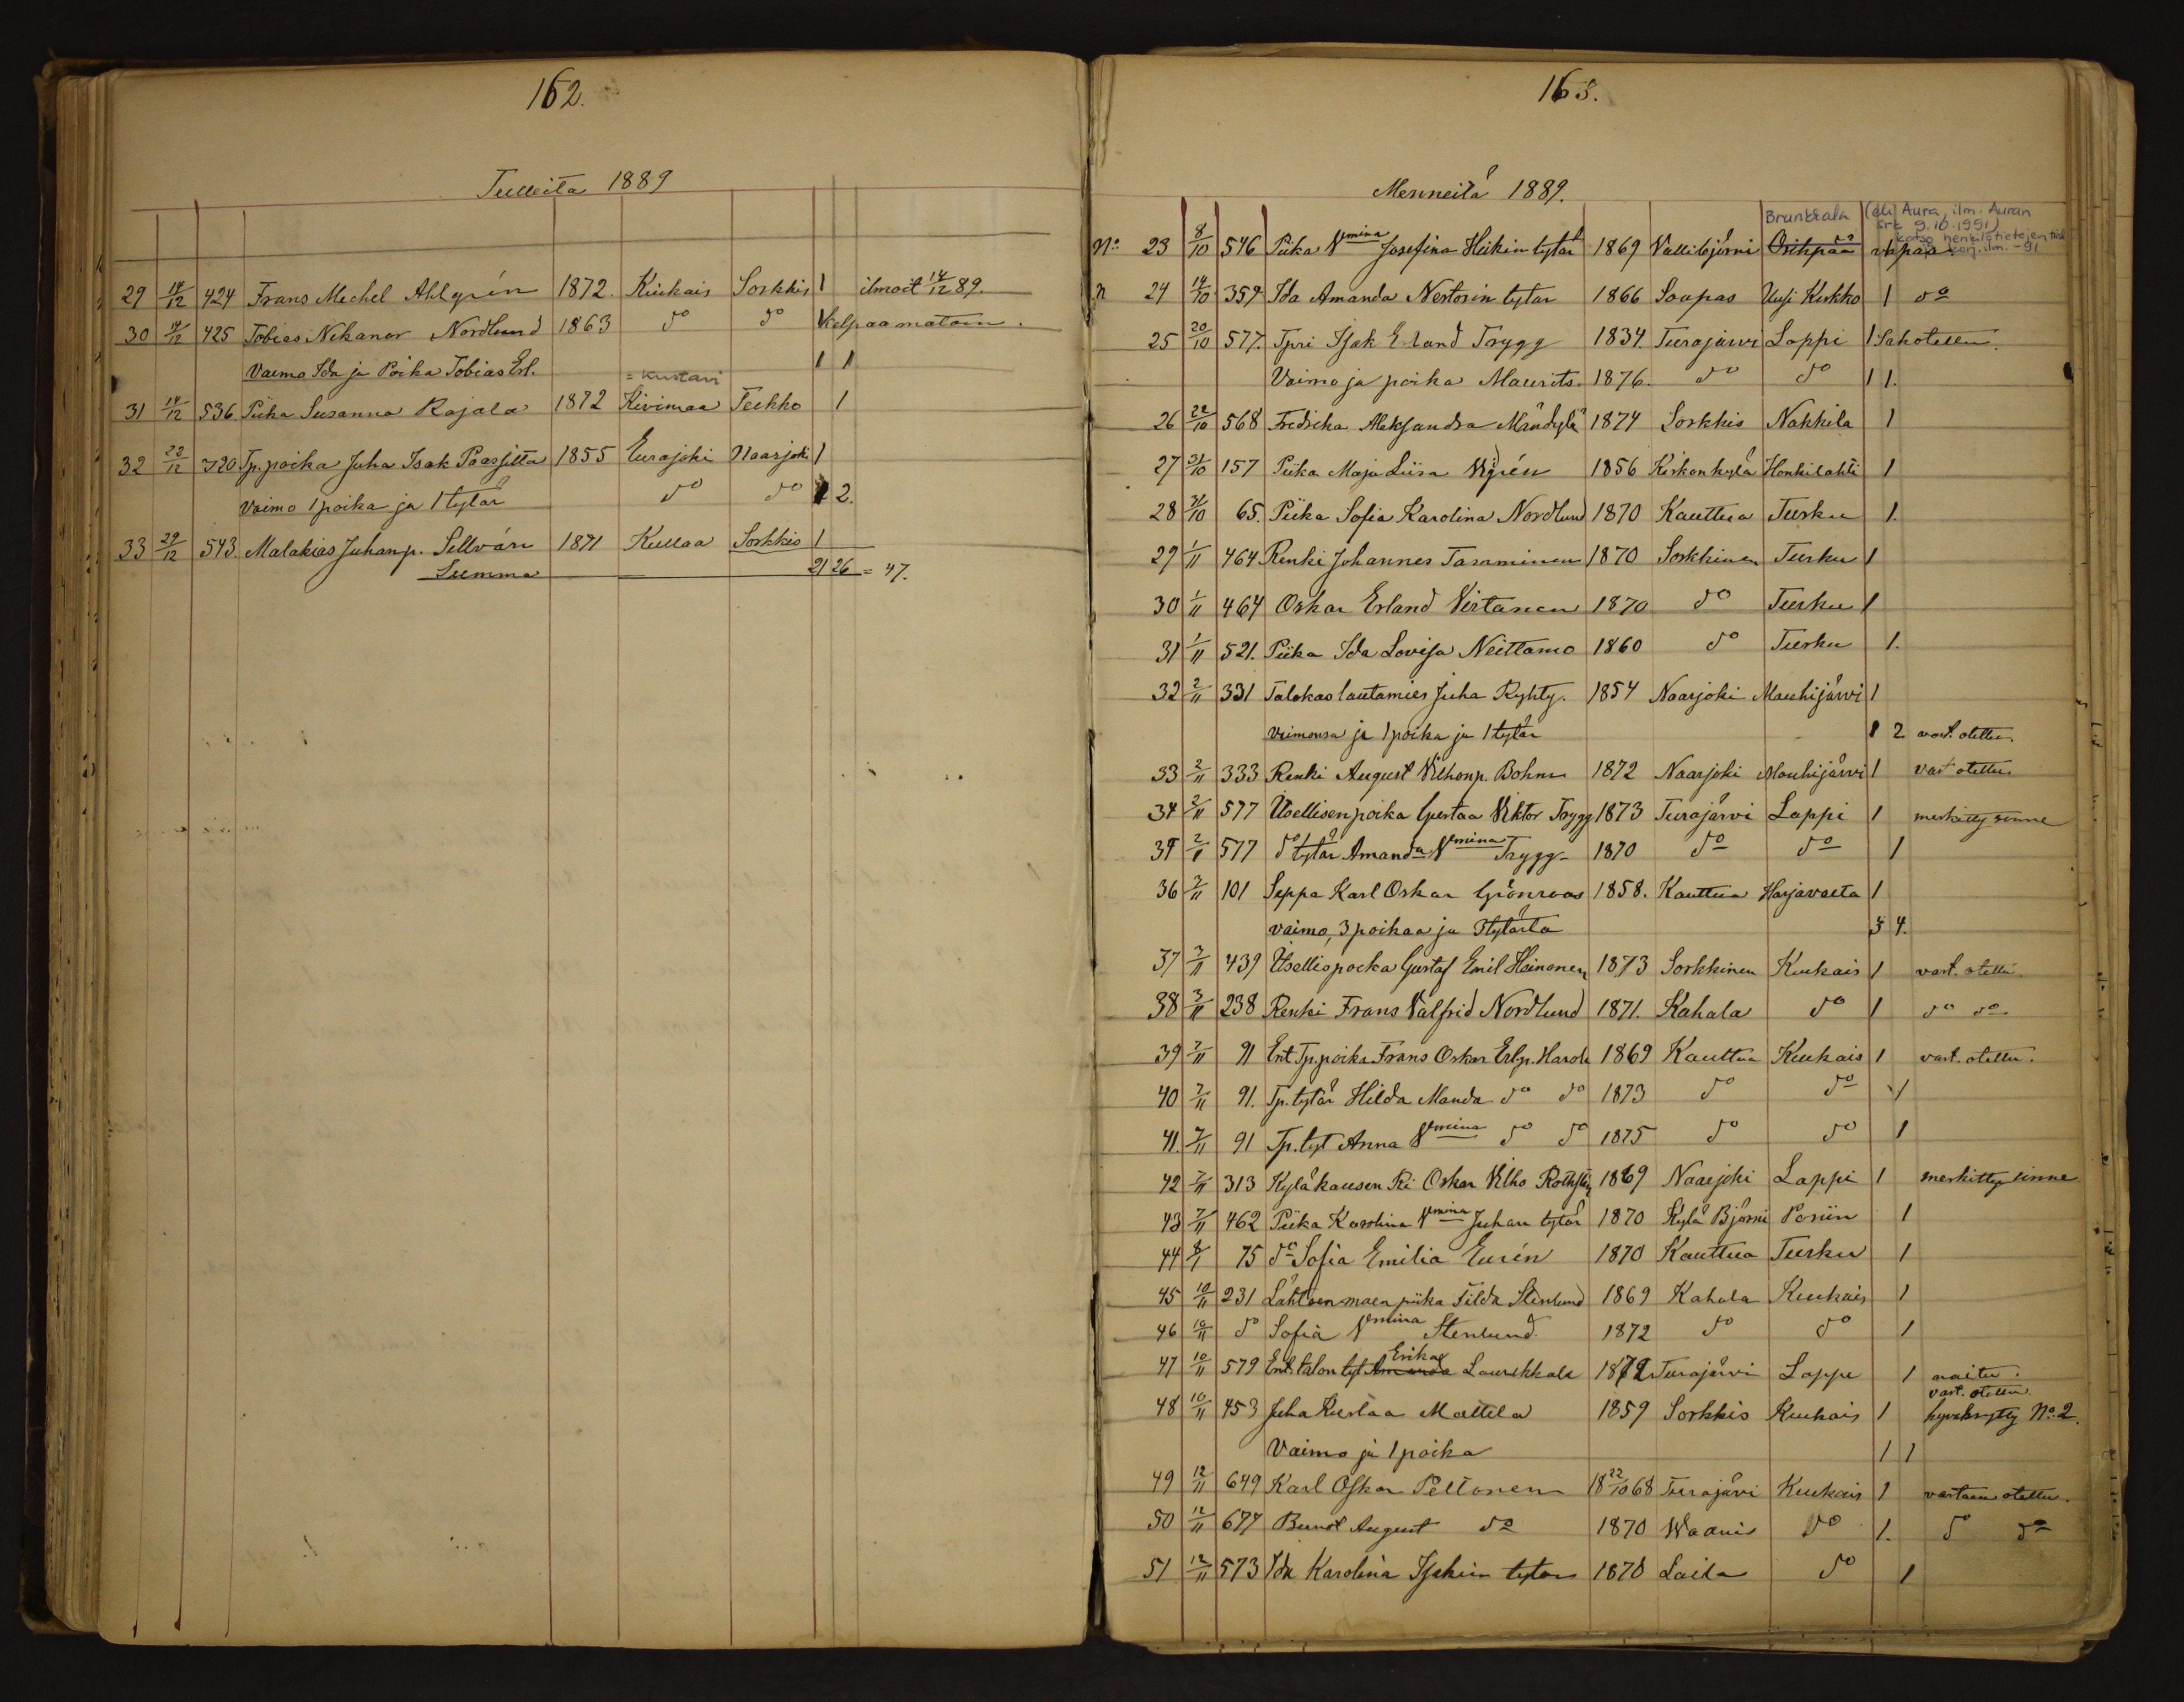 162.
Tulleita 1889
29 14/12 424 Frans Mechel Ahlgrén 1872. Kiukais Sorkkis 1 ilmoit 14/12 89.
30 14/12 425 Tobias Nikanor Nordlund 1863 do do Kelpaamatoin.
Vaimo Ida ja Poika Tobias Erl. 1 1
= Kustavi
31 14/12 536 Piika Susanna Rajala 1872 Kivimaa Teekko 1
32 22/12 720 Tp. poika Juha Isak Paasjitta 1855 Eurajoki Naarjoki 1
vaimo 1 poika ja 1 tytär do do 2.
33 29/12 543. Malakias Juhanp. Sellvár 1871 Kullaa Sorkkis 1
Summa 21 26 = 47.
163.
Menneitä 1889.
Brunkkala (eli Aura, ilm. Auran
srk 9.10.1991)
katso henkilötietojen
korj. ilm. -91
No 23 8/10 546 Piika Vmina Josefina Heikin tytär 1869 Vallibjörni Oripää
24 14/10 359. Ida Amanda Nestorin tytar 1866 Soupas Uusi Kirkko 1 do
25 20/10 577. Tpri Isak Erland Trygg 1834. Turajärvi Lappi 1
Vaimo ja poika Maurits. 1876. do do 1 1.
26 22/10 568 Fredrika Aleksandra Mändylä 1874 Sorkkis Nakkila 1
27 31/10 157 Piika Maja Liisa Vgrén 1856 Kirkonkylä Honkilahti 1
28 31/10 65. Piika Sofia Karolina Nordlund 1870 Kauttua Turku 1.
29 1/11 464 Renki Johannes Tamminen 1870 Sorkkinen Turku 1
30 1/11 464 Oskar Erland Virtanen 1870 do Turku 1
31 1/11 521. Piika Ida Lovisa Neittamo 1860 do Turku 1.
32 2/11 331 Talokas lautamies Juha Ryhty. 1854 Naarjoki Mouhijärvi 1
vaimonsa ja 1 poika ja 1 tytär 2 vast. otettu.
33 2/11 333 Renki August Vilhonp. Bohm 1872 Naarjoki Mouhijärvi 1 vast otettu.
34 2/11 577 Itsellisen poika Gustaa Viktor Trygg 1873 Turajärvi Lappi 1 merkitty sinne
35 2/11 577 do tytär Amanda Vmina Trygg 1870 do do 1
36 3/11 101 Seppa Karl Oskar Grönroos 1858. Kauttua Harjavalta 1
vaimo, 3 poikaa ja 3 tytärtä 4.
37 3/11 439 Itsellis poika Gustaf Emil Heinonen 1873 Sorkkinen Kiukais 1 vast. otettu.
38 3/11 238 Renki Frans Valfrid Nordlund 1871. Kahala do 1 do do
39 7/11 91 Ent. Tp. poika Frans Oskar Erlp. 1869 Kauttua Kiukais 1 vast. otettu.
40 7/11 91. Tp. tytär Hilda Manda do do 1873 do do 1
41. 7/11 91 Tp. tyt Anna Vmina do do 1875 do do 1
42 7/11 313 Kyläkausen Ri Oskar Vilho 1869 Naarjoki Lappi 1 merkitty sinne
43 7/11 462 Piika Karolina Vmina Juhan tytär 1870 Kylä Björni Poriin 1
44 8/11 75 do Sofia Emilia Eurén 1870 Kauttua Turku 1
45 10/11 231 Lähteenmäen piika Tilda Stenlund 1869 Kahala Kiukais 1
46 10/11 do Sofia Vmina Stenlund. 1872 do do 1
47 10/11 579 Ent. talon tyt Amanda Erika Laurikkala 1872 Turajärvi Lappi 1 naitu.
vast. otettu.
48 10/11 453 Juha Kustaa Mattila 1859 Sorkkis Kiukais 1 hyväksytty No 2.
Vaimo ja 1 poika 1 1
49 12/11 649 Karl Oskar Peltonen 18 22/10 68 Turajärvi Kiukais 1 vastaan otettu.
50 12/11 677 August do 1870 Waanis do 1. do do
51 12/11 573 Ida Karolina Isakin tytar 1870 Laila do 1